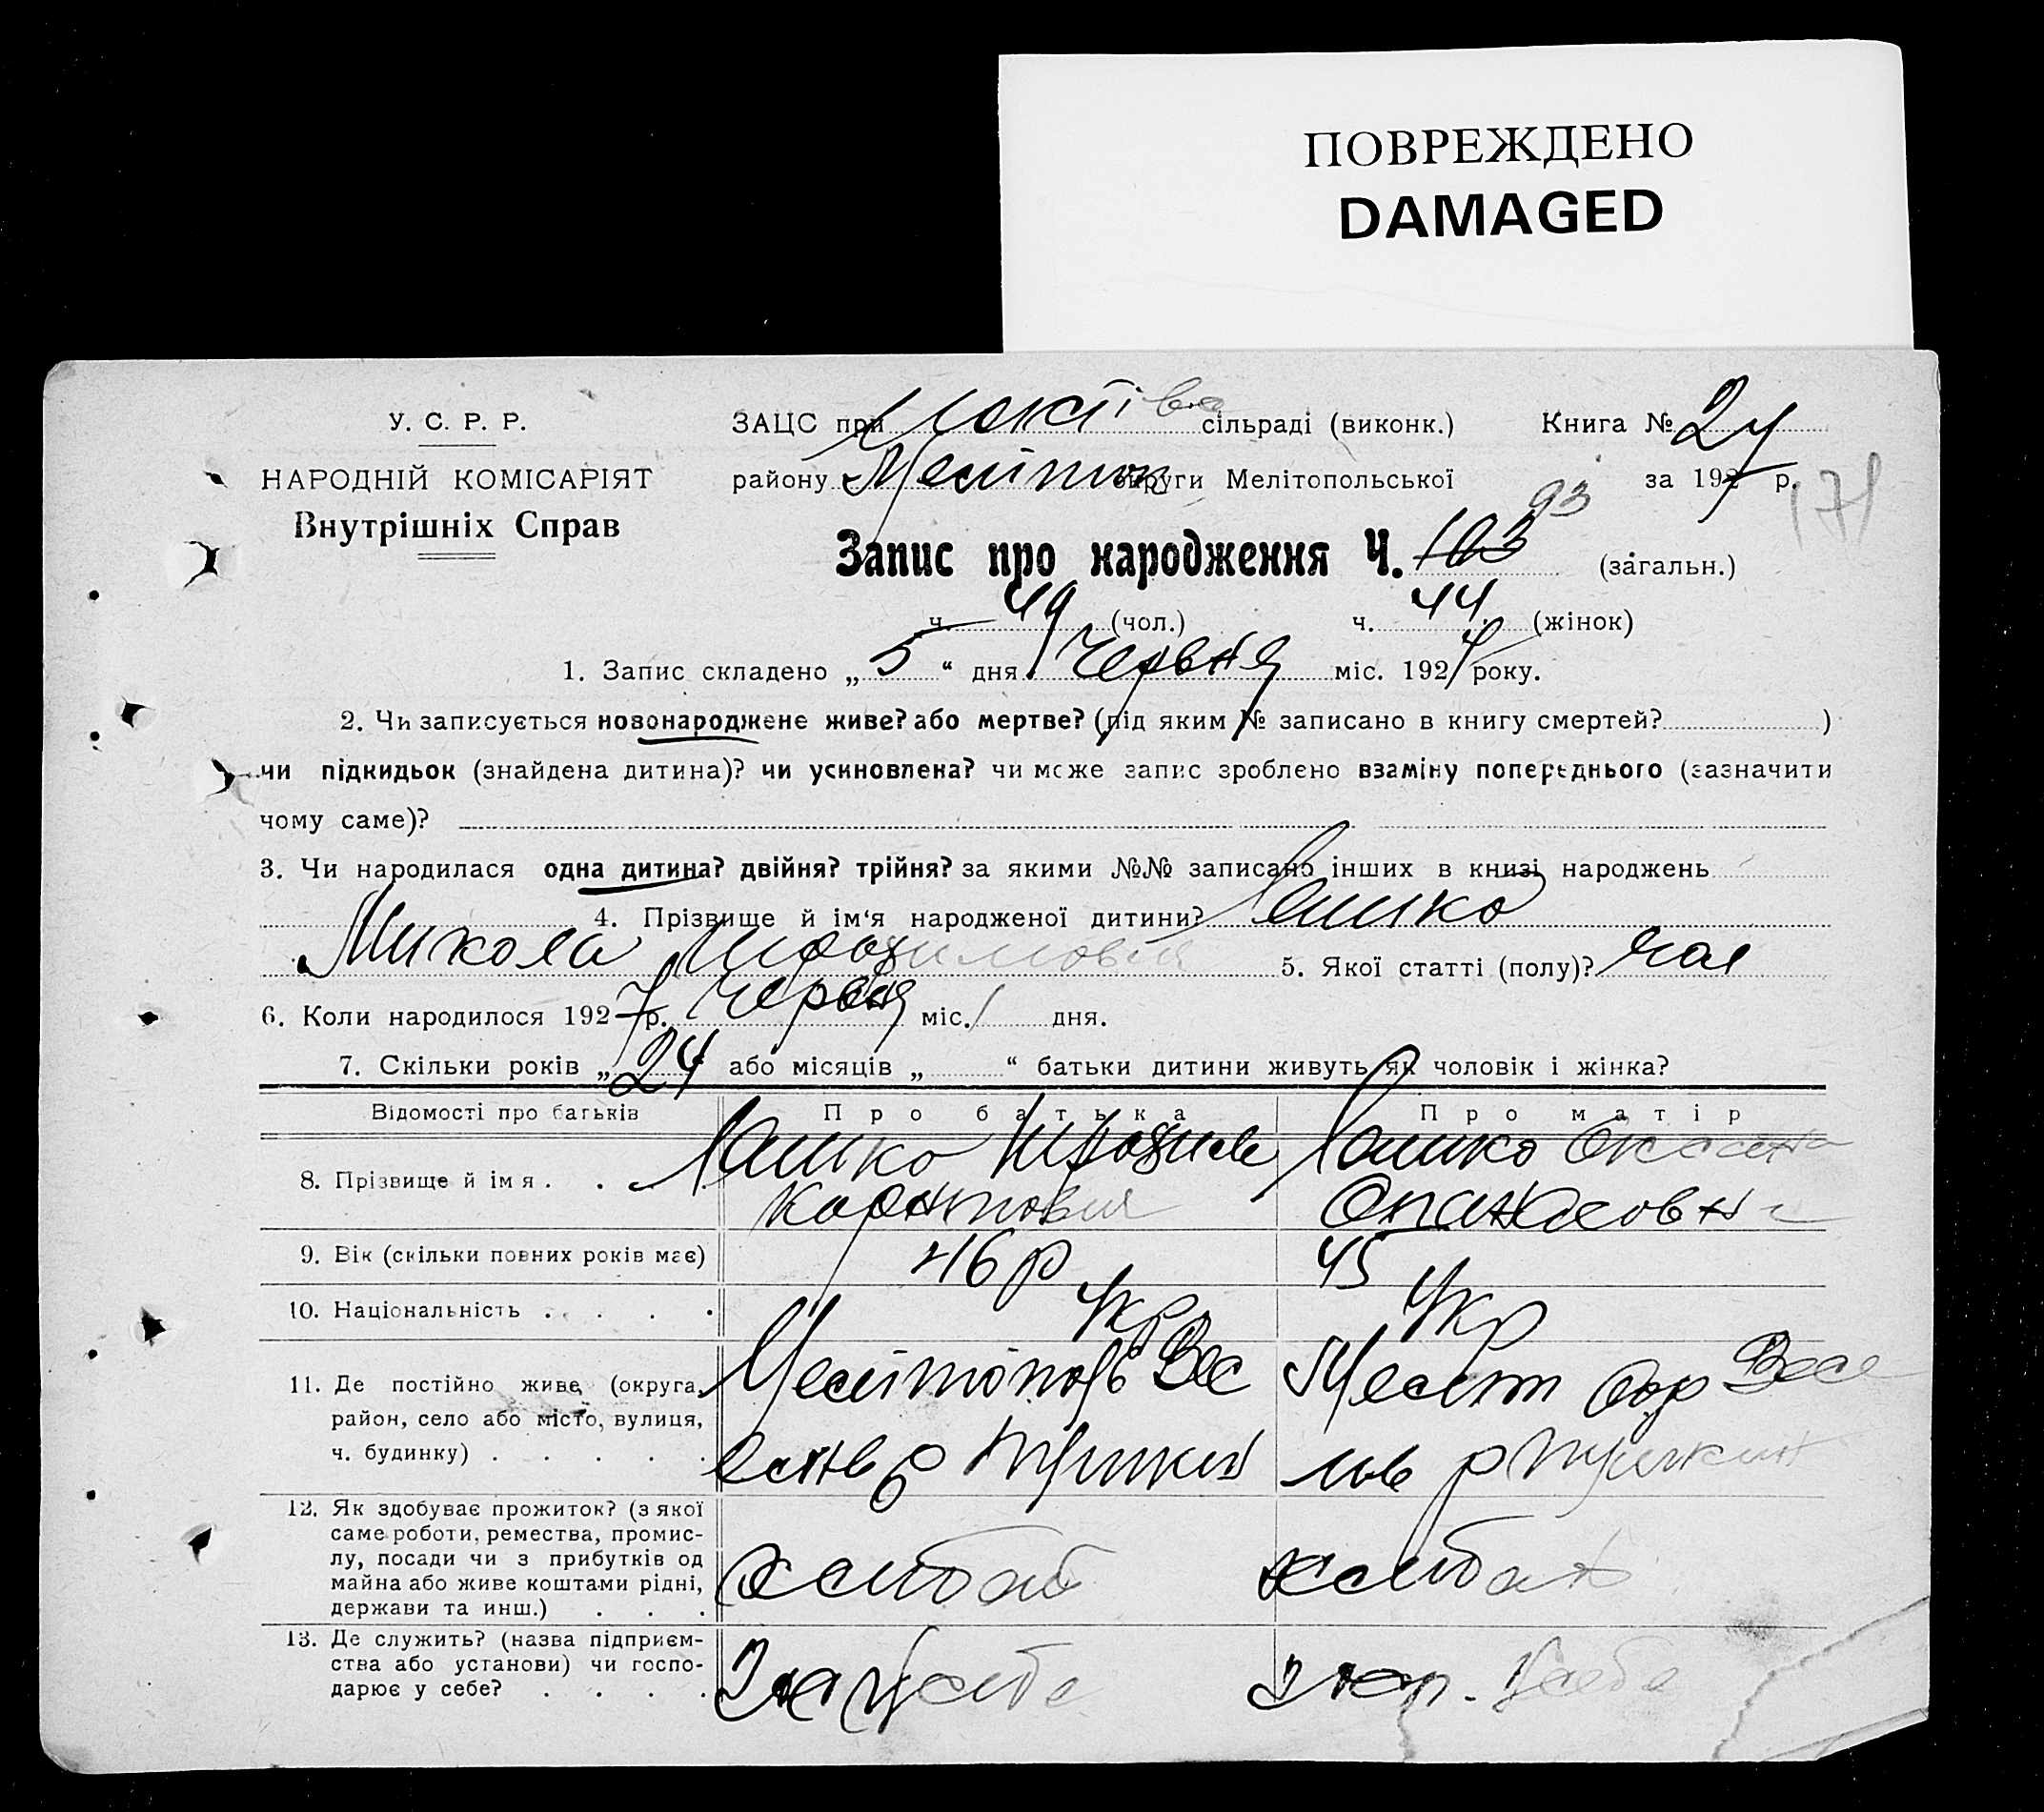 ПОВРЕЖДЕНО
DAMAGED
У. С. Р. Р.
ЗАЦС при сільраді (виконк.) Книга № 24
НАРОДНІЙ КОМІСАРІЯТ
району Мелітоп округи Мелітопольської за 1927 р.
171
Внутрішніх Справ
93
Запис про народження Ч. 103 (загальн.)
ч. 49 (чол.) ч. 44 (жінок)
1. Запис складено „ 5 “ дня Червня міс. 1927 року.
2. Чи записується новонароджене живе? або мертве? (під яким № записано в книгу смертей? )
чи підкидьок (знайдена дитина)? чи усиновлена? чи може запис зроблено взаміну попереднього (зазначити
чому саме)?
3. Чи народилася одна дитина? двійня? трійня? за якими №№ записано інших в книзі народжень
4. Прізвище й ім‘я народженої дитини? Лашко
Микола 5. Якої статті (полу)? чол
6. Коли народилося 1927 р. Червня міс. 1 дня.
7. Скільки років „ 24 або місяців „ “ батьки дитини живуть як чоловік і жінка?
Відомості про батьків Про батька Про матір
8. Прізвище й імя . . . Лашко Лашко Оксана
Опанасовна
9. Вік (скільки повних років має) 46 р 45
10. Національність . . . . Укр Укр
11. Де постійно живе (округа, Мелітополь Вес Меліт окр Весе
район, село або місто, вулиця,
ч. будинку) . . . . . р Пушкин лів р Пушкин
12. Як здобуває прожиток? (з якої
саме роботи, ремества, промис-
лу, посади чи з прибутків од
майна або живе коштами рідні, хлібоп хлібоп
держави та инш.) . . .
13. Де служить? (назва підприєм-
ства або установи) чи госпо-
дарює у себе? . . . . у себе у себе